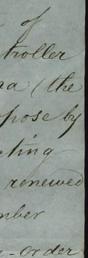 of
ntroller
na (the
rpose by
cting
renewed
mber
y-order